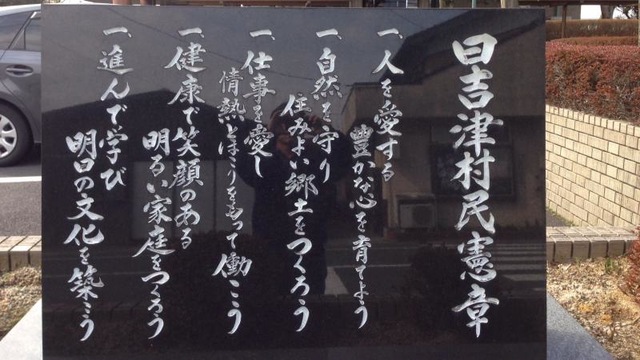 日吉津村民憲章
一、人を愛する
豊かな心を育てよう
一、自然を守り
住みよい郷土をつくろう
一、仕事を愛し
情熱とほこりをもって働こう
一、健康で笑顔のある
明るい家庭をつくろう
一、進んで学び
明日の文化を築こう